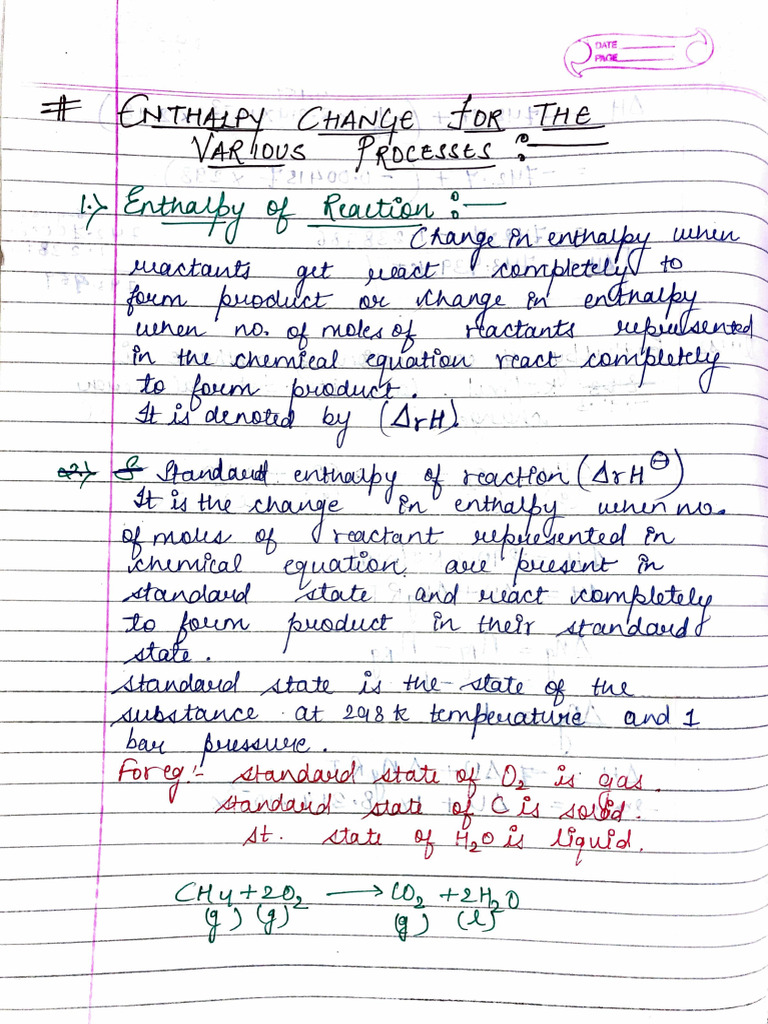 DATE
PAGE
# ENTHALPY CHANGE FOR THE
VARIOUS PROCESSES :—
1.) Enthalpy of Reaction :—
Change in enthalpy when
reactants get react completely to
form product or change in enthalpy
when no. of moles of reactants represented
in the chemical equation react completely
to form product.
It is denoted by (ΔrH)
2.) S Standard enthalpy of reaction (ΔrH⊖)
It is the change in enthalpy when no.
of moles of reactant represented in
chemical equation are present in
standard state and react completely
to form product in their standard
state.
standard state is the state of the
substance at 298 k temperature and 1
bar pressure.
For eg:- standard state of O₂ is gas.
standard state of C is solid.
st. state of H₂O is liquid.
CH4 + 2O₂ → CO₂ + 2H₂O
(g) (g) (g) (l)